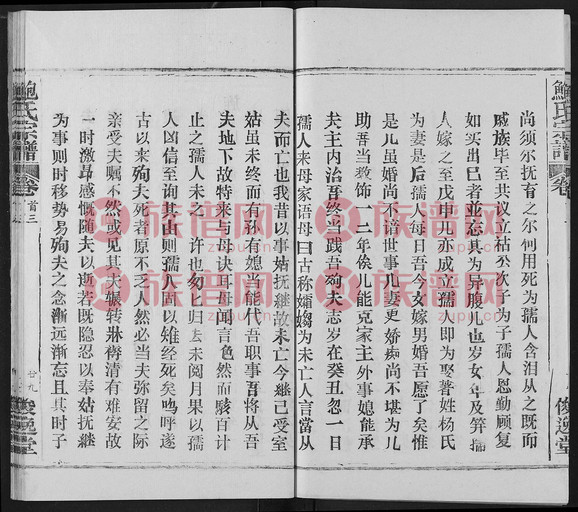 鮑氏宗譜
卷
俊逸堂
尚須尔抚育之尔何用死为孺人含泪从之既而
戚族毕至共议立枯次次子为子孺人恩勤顾复
如实出巳者並忘其为异腹儿也岁女年及笄孺
人嫁之至戊申儿亦成立孺人即为娶謩姓杨氏
为妻是后孺人每日吾今女嫁男婚吾愿了矣惟
是儿虽婚尚不谙世事儿妻更娇痴尚不堪为儿
助吾当教饰一二年俟儿能克家主外事媳能承
夫主内治吾终当践吾殉夫志岁在癸丑忽一日
孺人来母家语母曰古称孀嫋为未亡人言當从
夫而亡也我昔以事姑抚继故未亡今继已受室
姑虽未终而有孙有媳皆能代吾职事吾将从吾
夫地下故特来与母诀耳母闻言色然而骇百计
止之孺人未之
许也匆匕归去未阅月果以孺
人凶信至询其由则孺人固以雉经死矣呜呼遂
古以来殉夫死者原不乏人然必当夫弥留之际
亲受夫嘱不然或见其夫辗转牀褥清有难安故
一时激昻感慨随夫以逝若既隐忍以奉姑抚继
为事则时移势易殉夫之念渐远渐忘且其时子
鮑氏宗譜
卷
首三
廿九
俊逸堂
族谱网
zupu.cn